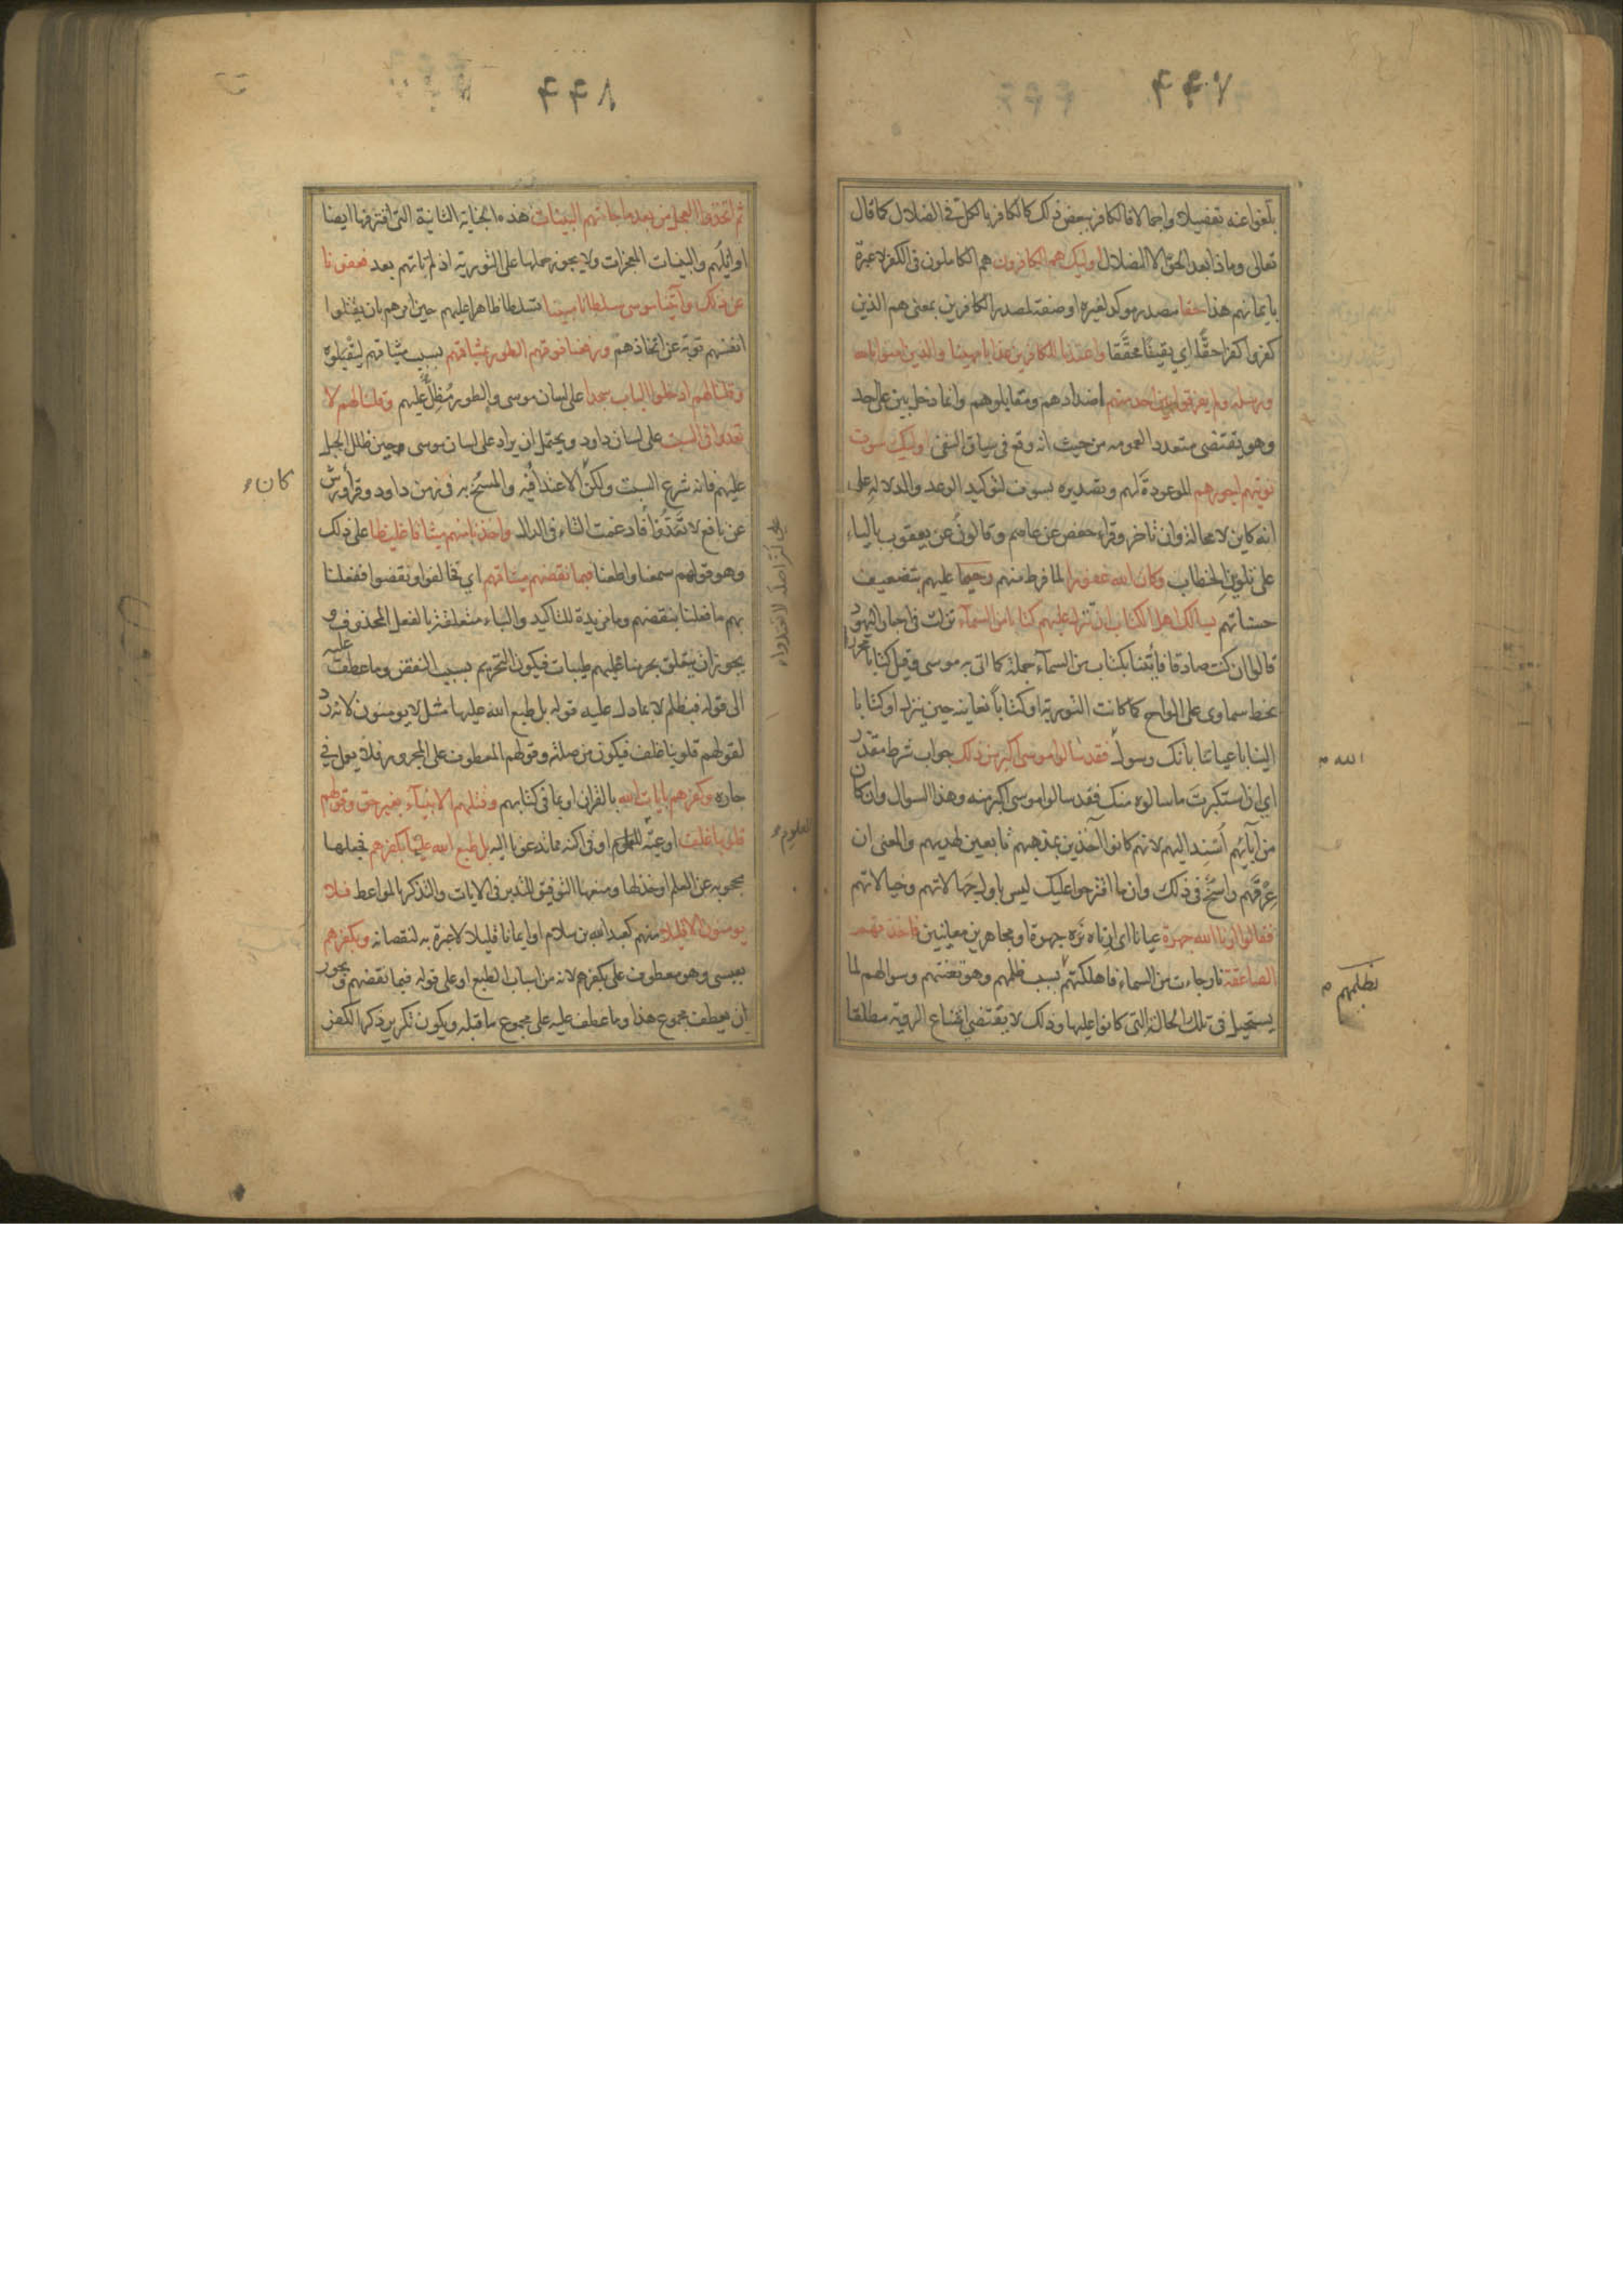 ٢٢٧
بلغوا عنه تفصيلا واجمالا فالكافر ببعض ذلك كالكافر بالكل في الضلال كما قال
تعالى وماذا بعد الحق الا الضلال اوليك هم الكافرون هم الكاملون في الكفر لا عبرة
بايمانهم هذا حقا مصدر موكد لغيره او صفة لمصدر الكافرين بمعنى هم الذين
كفروا كفرا حقا اي يقينا محققا واعتدنا للكافرين عذابا مهينا والذين امنوا بالله
ورسله ولم يفرقوا بين احد منهم اضدادهم ومقابلوهم وانما دخل بين على احد
وهو يقتضي متعددا لعمومه من حيث انه وقع في سياق النفي اوليك سوف
نوتيهم اجورهم الموعودة لهم وتصديره بسوف لتوكيد الوعد والدلالة على
انه كاين لا محالة وان تاخر وقراء حفص عن عاصم وقالون عن يعقوب بالياء
على تلوين الخطاب وكان الله غفورا لما فرط منهم رحيما عليهم بتضعيف
حسناتهم يسالك اهل الكتاب ان تنزل عليهم كتابا من السماء نزلت في احبار اليهود
قالوا ان كنت صادقا فأتنا بكتاب من السماء جملة كما اتى به موسى وقيل كتابا محررا
بخط سماوي على الواح كما كانت التورية او كتابا نعاينه حين ينزل او كتابا
الينا باعياننا بانك رسول فقد سالوا موسى اكبر من ذلك جواب شرط مقدر
الله
اي ان استكبرت ما سالوه منك فقد سالوا موسى اكبر منه وهذا السوال وان كان
من آبائهم أسند اليهم لانهم كانوا آخذين بمذهبهم تابعين لهديهم والمعنى ان
عرقهم راسخ في ذلك وان ما اقترحوا عليك ليس باول جهالاتهم وخيالاتهم
فقالوا ارنا الله جهرة عيانا اي ارناه نره جهرة او مجاهرين معاينين فاخذتهم
الصاعقة نار جاءت من السماء فاهلكتهم بسبب ظلمهم وهو تعنتهم وسوالهم لما
بظلمهم
يستحيل في تلك الحال التي كانوا عليها وذلك لا يقتضي امتناع الروية مطلقا
٢٢٨
ثم اتخذوا العجل من بعد ما جاءتهم البينات هذه الجناية الثانية التي اقترفها ايضا
اوائلهم والبينات المعجزات ولا يجوز حملها على التورية اذ لم تاتهم بعد فعفونا
عن ذلك وآتينا موسى سلطانا مبينا تسلطا ظاهرا عليهم حين امرهم بان يقتلوا
انفسهم توبة عن اتخاذهم ورفعنا فوقهم الطور بميثاقهم بسبب ميثاقهم ليقبلوه
وقلنا لهم ادخلوا الباب سجدا على لسان موسى والطور مظل عليهم وقلنا لهم لا
تعدوا في السبت على لسان داود ويحتمل ان يراد على لسان موسى وحين ظلل الجبل
عليهم فانه شرع السبت ولكن الاعتدا فيه والمسخ به في زمن داود وقرأ ورش
كان
عن نافع لا تعدوا فادغمت التاء في الدال واخذنا منهم ميثاقا غليظا على ذلك
وهو قولهم سمعنا واطعنا فبما نقضهم ميثاقهم اي فخالفوا ونقضوا ففعلنا
بهم ما فعلنا بنقضهم وما مزيدة للتاكيد والباء متعلقة بالفعل المحذوف و
يجوز ان يتعلق بحرمنا عليهم طيبات فيكون التحريم بسبب النقض وما عطف عليه
الى قوله فبظلم لا بما دل عليه قوله بل طبع الله عليها مثل لا يومنون لانه رد
لقولهم قلوبنا غلف فيكون من صلة وقولهم المعطوف على المجرور فلا يعمل في
جاره وكفرهم بايات الله بالقران او بما في كتابهم وقتلهم الانبياء بغير حق وقولهم
قلوبنا غلف اوعية للعلوم او في اكنة مما تدعونا اليه بل طبع الله عليها بكفرهم فجعلها
للعلوم
محجوبة عن العلم او خذلها ومنعها التوفيق للتدبر في الايات والتذكر بالمواعظ فلا
يومنون الا قليلا منهم كعبد الله بن سلام او ايمانا قليلا لا عبرة به لنقصانه وبكفرهم
بعيسى وهو معطوف على بكفرهم لانه من اسباب الطبع او على قوله فبما نقضهم ويجوز
ان يعطف مجموع هذا وما عطف عليه على مجموع ما قبله ويكون تكرير ذكر الكفر